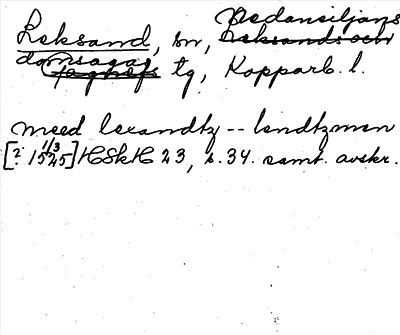 Nedansiljans
Leksand, sn, Leksands och
domsagas tg, Kopparb. l.
meed lexandtz -- lendtzmen
[? 1/3 1525] HSkH 23, s. 34. samt. avskr.